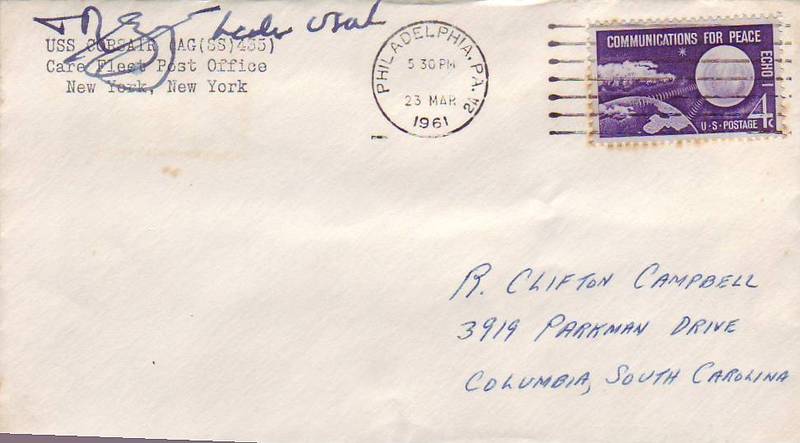 USS CORSAIR (AG(SS)435)
Care Fleet Post Office
New York, New York
PHILADELPHIA, PA.
5 30 PM
23 MAR
1961
2
COMMUNICATIONS FOR PEACE
ECHO I
U·S·POSTAGE 4c
R. CLIFTON CAMPBELL
3919 PARKMAN DRIVE
COLUMBIA, SOUTH CAROLINA